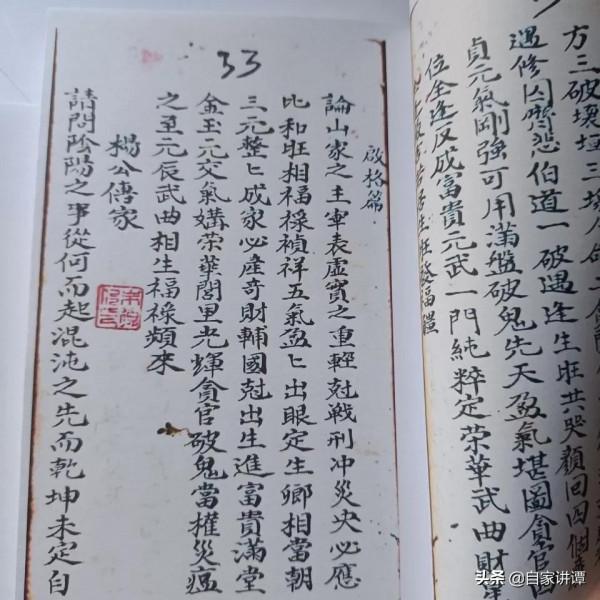 方三破壞
遇修因齊忽伯道一破遇逢生旺共哭顏回四個
貞元氣剛強可用滿盤破鬼先天盈氣堪圖貪官四
位全逢反成富貴元武一門純粹定榮華武曲財
居生旺發福
33
啟格篇
論山家之主宰表虛實之重輕尅戰刑冲災央必應
比和旺相福祿禎祥五氣盈匕出眼定生卿相當朝
三元整匕成家必產奇財輔國尅出生進富貴滿堂
金玉元交氣媾榮華閭里光輝貪官破鬼當權災瘟
之至元辰武曲相生福祿頻來
楊公傳家
請問陰陽之事從何而起混沌之先而乾坤未定自
头条 @自家讲谭